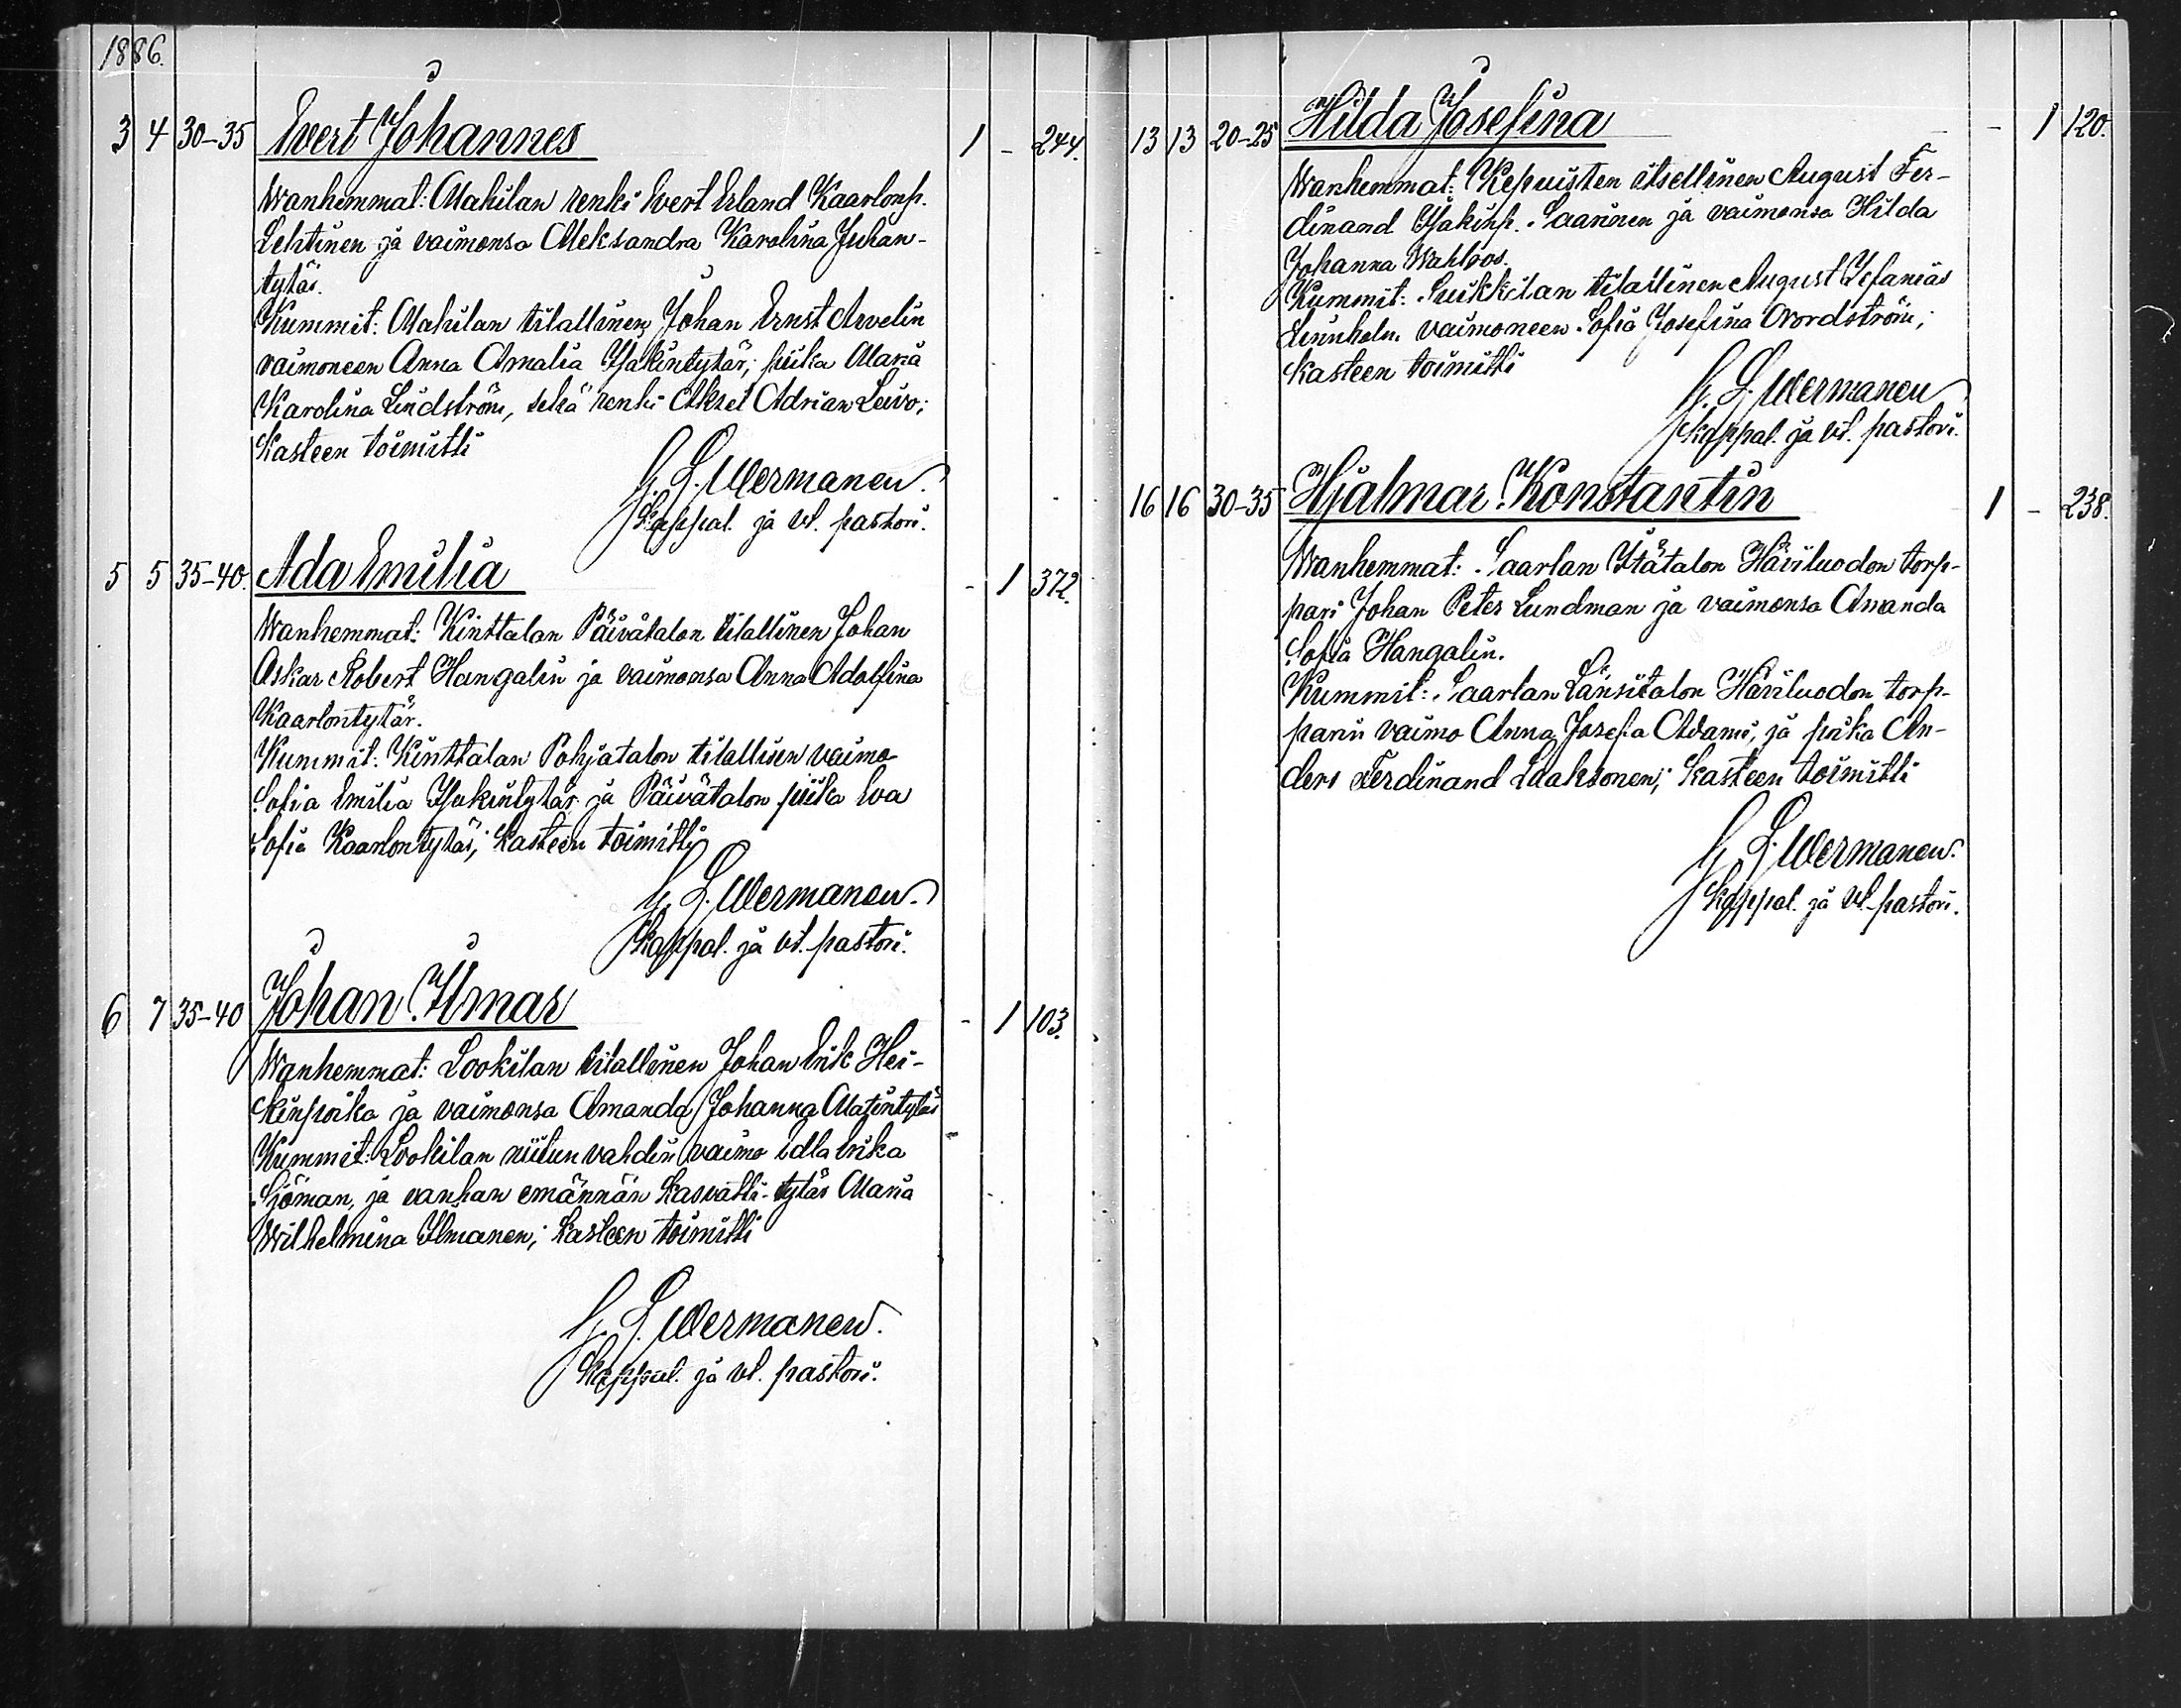 1886.
3 4 30-35 Evert Johannes 1 - 244.
Wanhemmat: Mahilan renki Evert Erland Kaarlonp.
Lehtinen ja vaimonsa Aleksandra Karolina Juhan-
tytär.
Kummit: Mahilan tilallinen Johan Ernst Arvelin
vaimoneen Anna Amalia Isakintytär; piika Maria
Karolina Lindström, sekä renki Aksel Adrian Leivo;
kasteen toimitti
G. L. Mermanen.
Kappal. ja vt. pastori.
5 5 35-40. Ada Emilia - 1 372.
Wanhemmat: Kinttalan Päivätalon tilallinen Johan
Oskar Robert Hangelin ja vaimonsa Anna Adolfina
Kaarlontytär.
Kummit: Kinttalan Pohjatalon tilallisen vaimo
Sofia Emilia Isakintytär ja Päivätalon piika Eva
Sofia Kaarlontytär; kasteen toimitti
G. L. Mermanen.
Kappal. ja vt. pastori.
6 7 35-40 Johan Ilmar - 1 103.
Wanhemmat: Lookilan tilallinen Johan Erik Hei-
kinpoika ja vaimonsa Amanda Johanna Matintytär
Kummit: Lookilan niitun vahdin vaimo Edla Erika
Sjöman, ja vanhan emännän kasvatti-tytär Maria
Wilhelmina Ilmanen; kasteen toimitti
G. L. Mermanen.
Kappal. ja vt. pastori.
13 13 20-25 Hilda Josefina - 1 120.
Wanhemmat: Repuisten itsellinen August Fer-
dinand Isakinp. Saarinen ja vaimonsa Hilda
Johanna Wahlroos.
Kummit: Suikkilan tilallinen August Stefanias
Linnholm vaimoneen Sofia Josefina Nordström;
kasteen toimitti
G. L. Mermanen
Kappal. ja vt. pastori.
16 16 30-35 Hjalmar Konstantin 1 - 238.
Wanhemmat: Saarlan Itätalon Häviluodon torp-
pari Johan Peter Lundman ja vaimonsa Amanda
Sofia Hangelin.
Kummit: Saarlan Länsitalon Häviluodon torp-
parin vaimo Anna Josefa Adami, ja poika An-
ders Ferdinand Laaksonen; kasteen toimitti
G. L. Mermanen.
Kappal. ja vt. pastori.